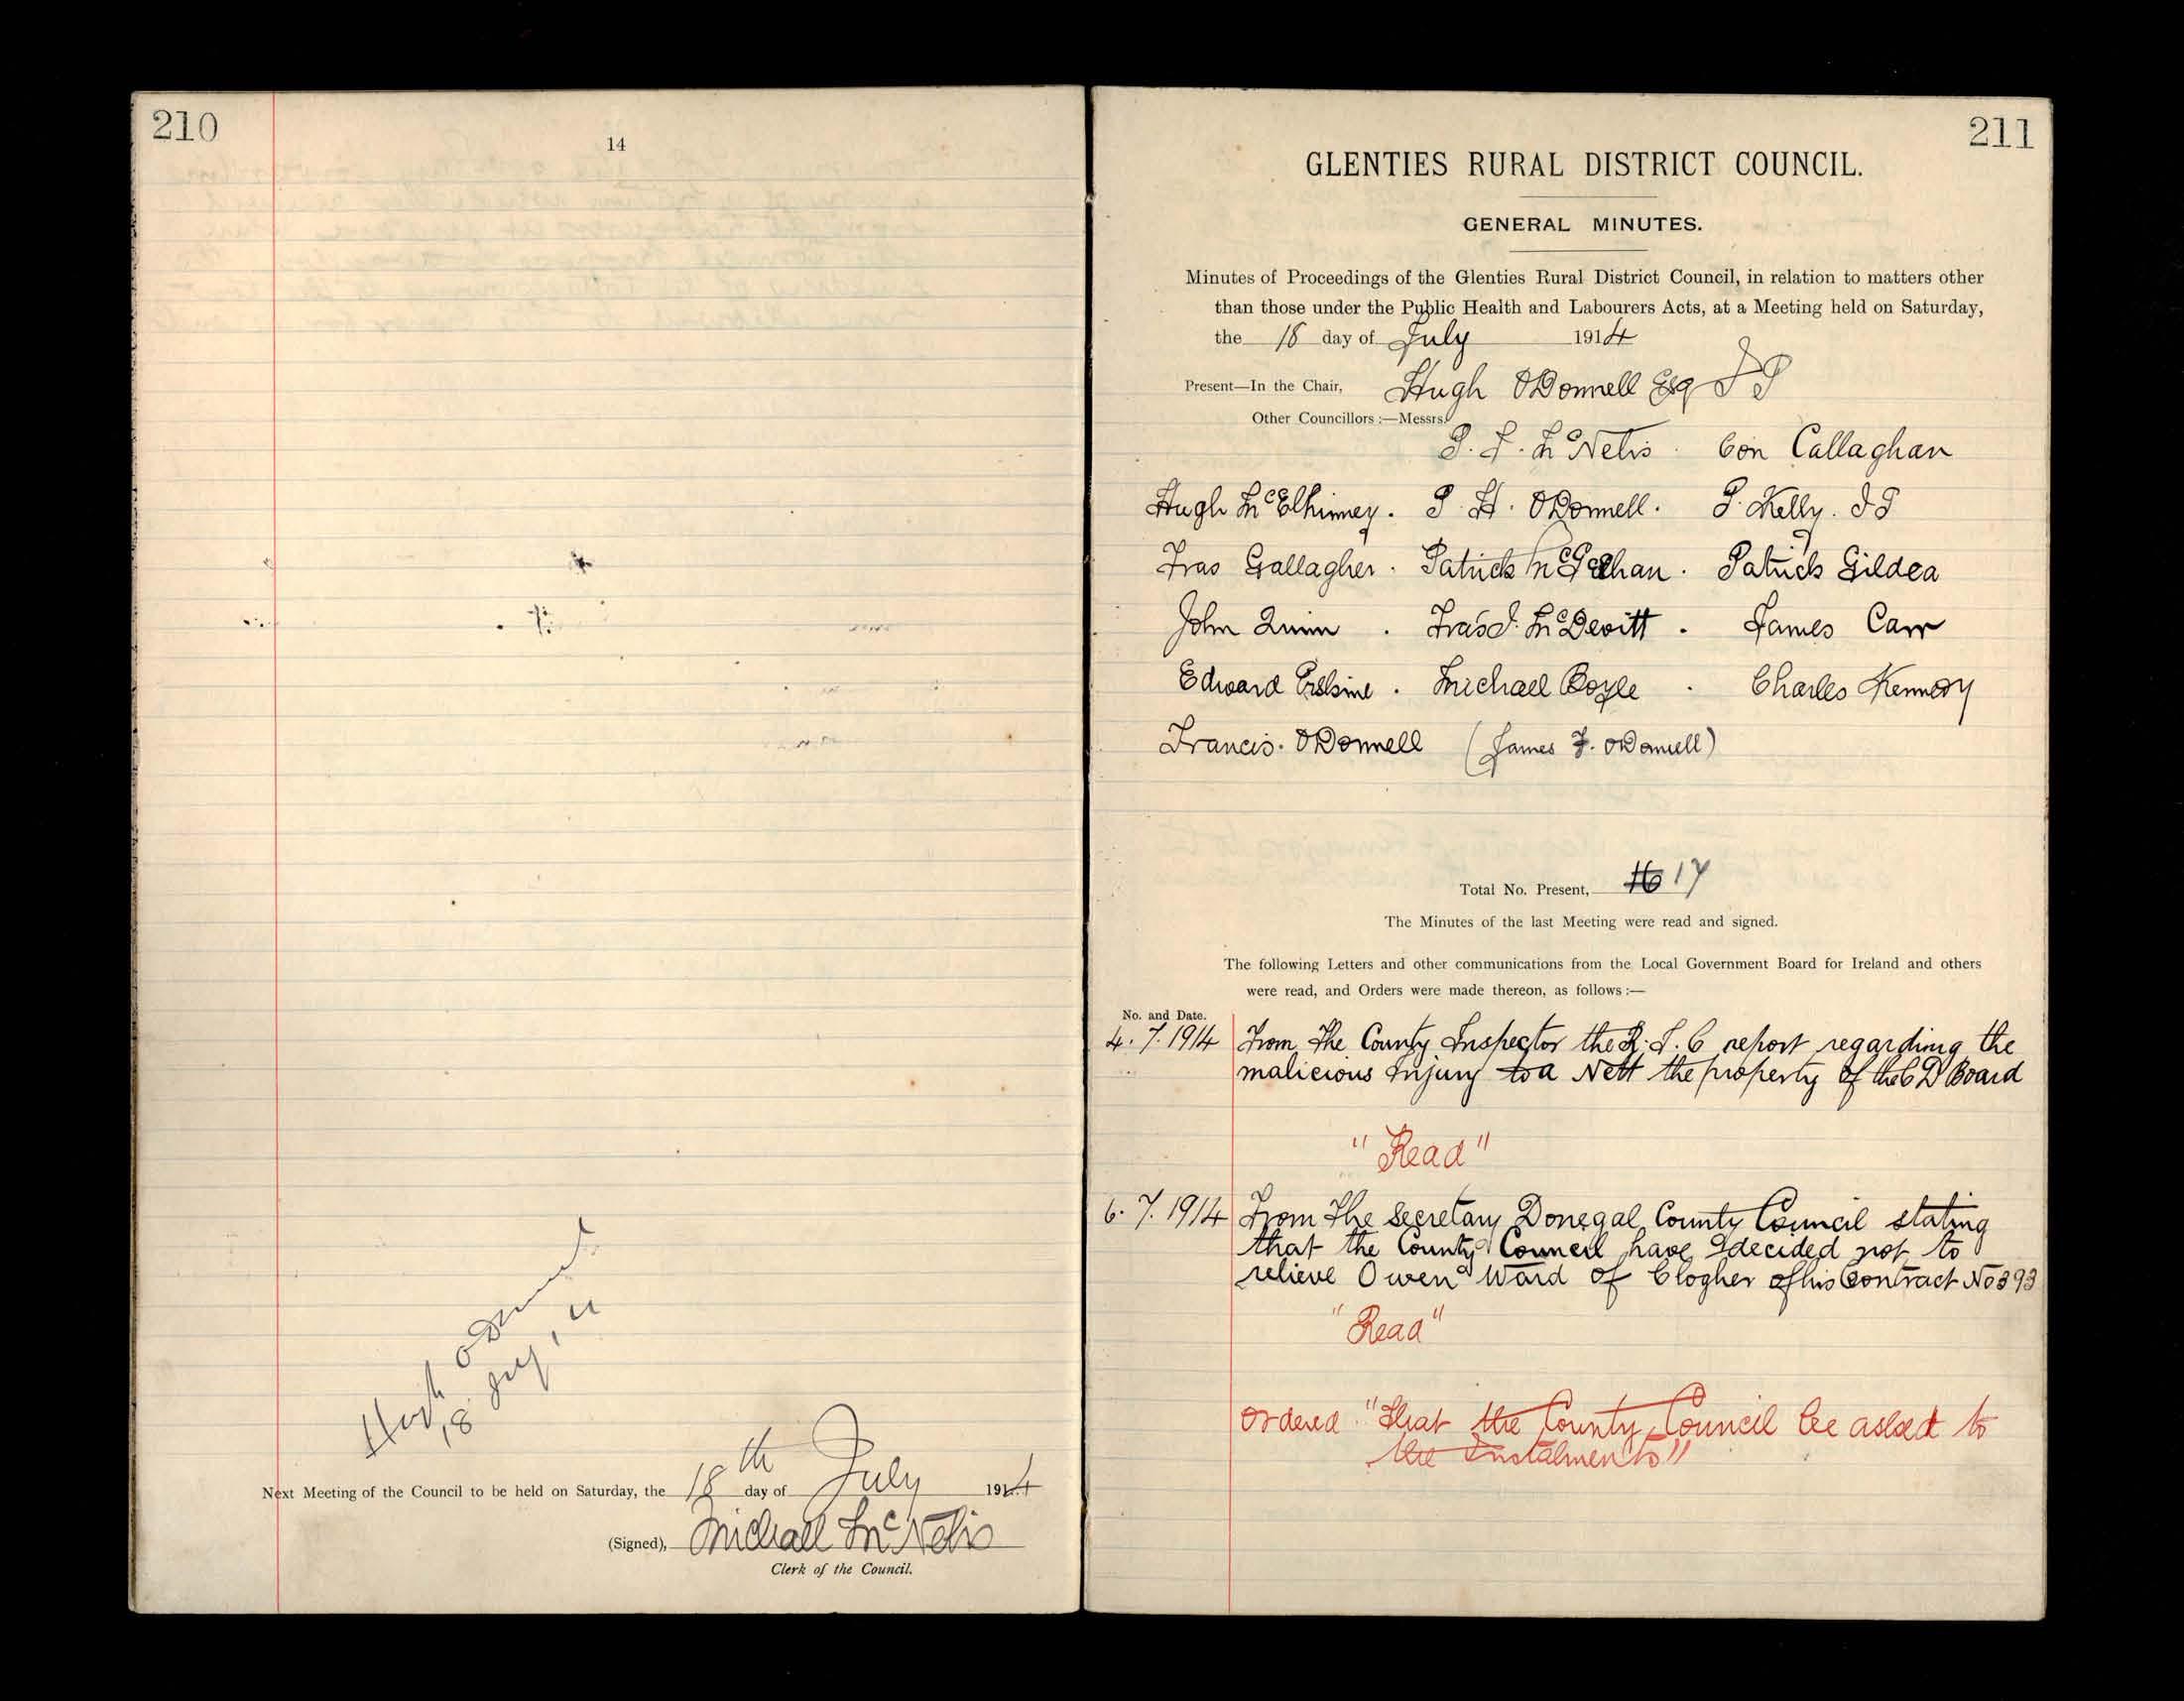 210
14
Hugh ODonnell
18 July, 14
Next Meeting of the Council to be held on Saturday, the 18th day of July 1914
(Signed), Michael McNelis
Clerk of the Council.
211
GLENTIES RURAL DISTRICT COUNCIL.
GENERAL MINUTES.
Minutes of Proceedings of the Glenties Rural District Council, in relation to matters other
than those under the Public Health and Labourers Acts, at a Meeting held on Saturday,
the 18 day of July 1914
Present—In the Chair, Hugh ODonnell Esq JP
Other Councillors :—Messrs.
P. F. McNelis . Con Callaghan
Hugh McElhinney . P. H. ODonnell . P. Kelly. JP
Fras Gallagher . Patrick McGeehan . Patrick Gildea
John Quinn . Fras J. McDevitt . James Carr
Edward Erskine . Michael Boyle . Charles Kennedy
Francis. ODonnell (James F. ODonnell)
Total No. Present, 16 17
The Minutes of the last Meeting were read and signed.
The following Letters and other communications from the Local Government Board for Ireland and others
were read, and Orders were made thereon, as follows :—
No. and Date.
4. 7. 1914 From The County Inspector the R. I. C report regarding the
malicious Injury to a Nett the property of the C D Board
"Read"
6. 7. 1914 From The Secretary Donegal County Council stating
that the County Council have decided not to
relieve Owen Ward of Clogher of his Contract No 393
"Read"
Ordered "That the County Council be asked to
the Instalments"